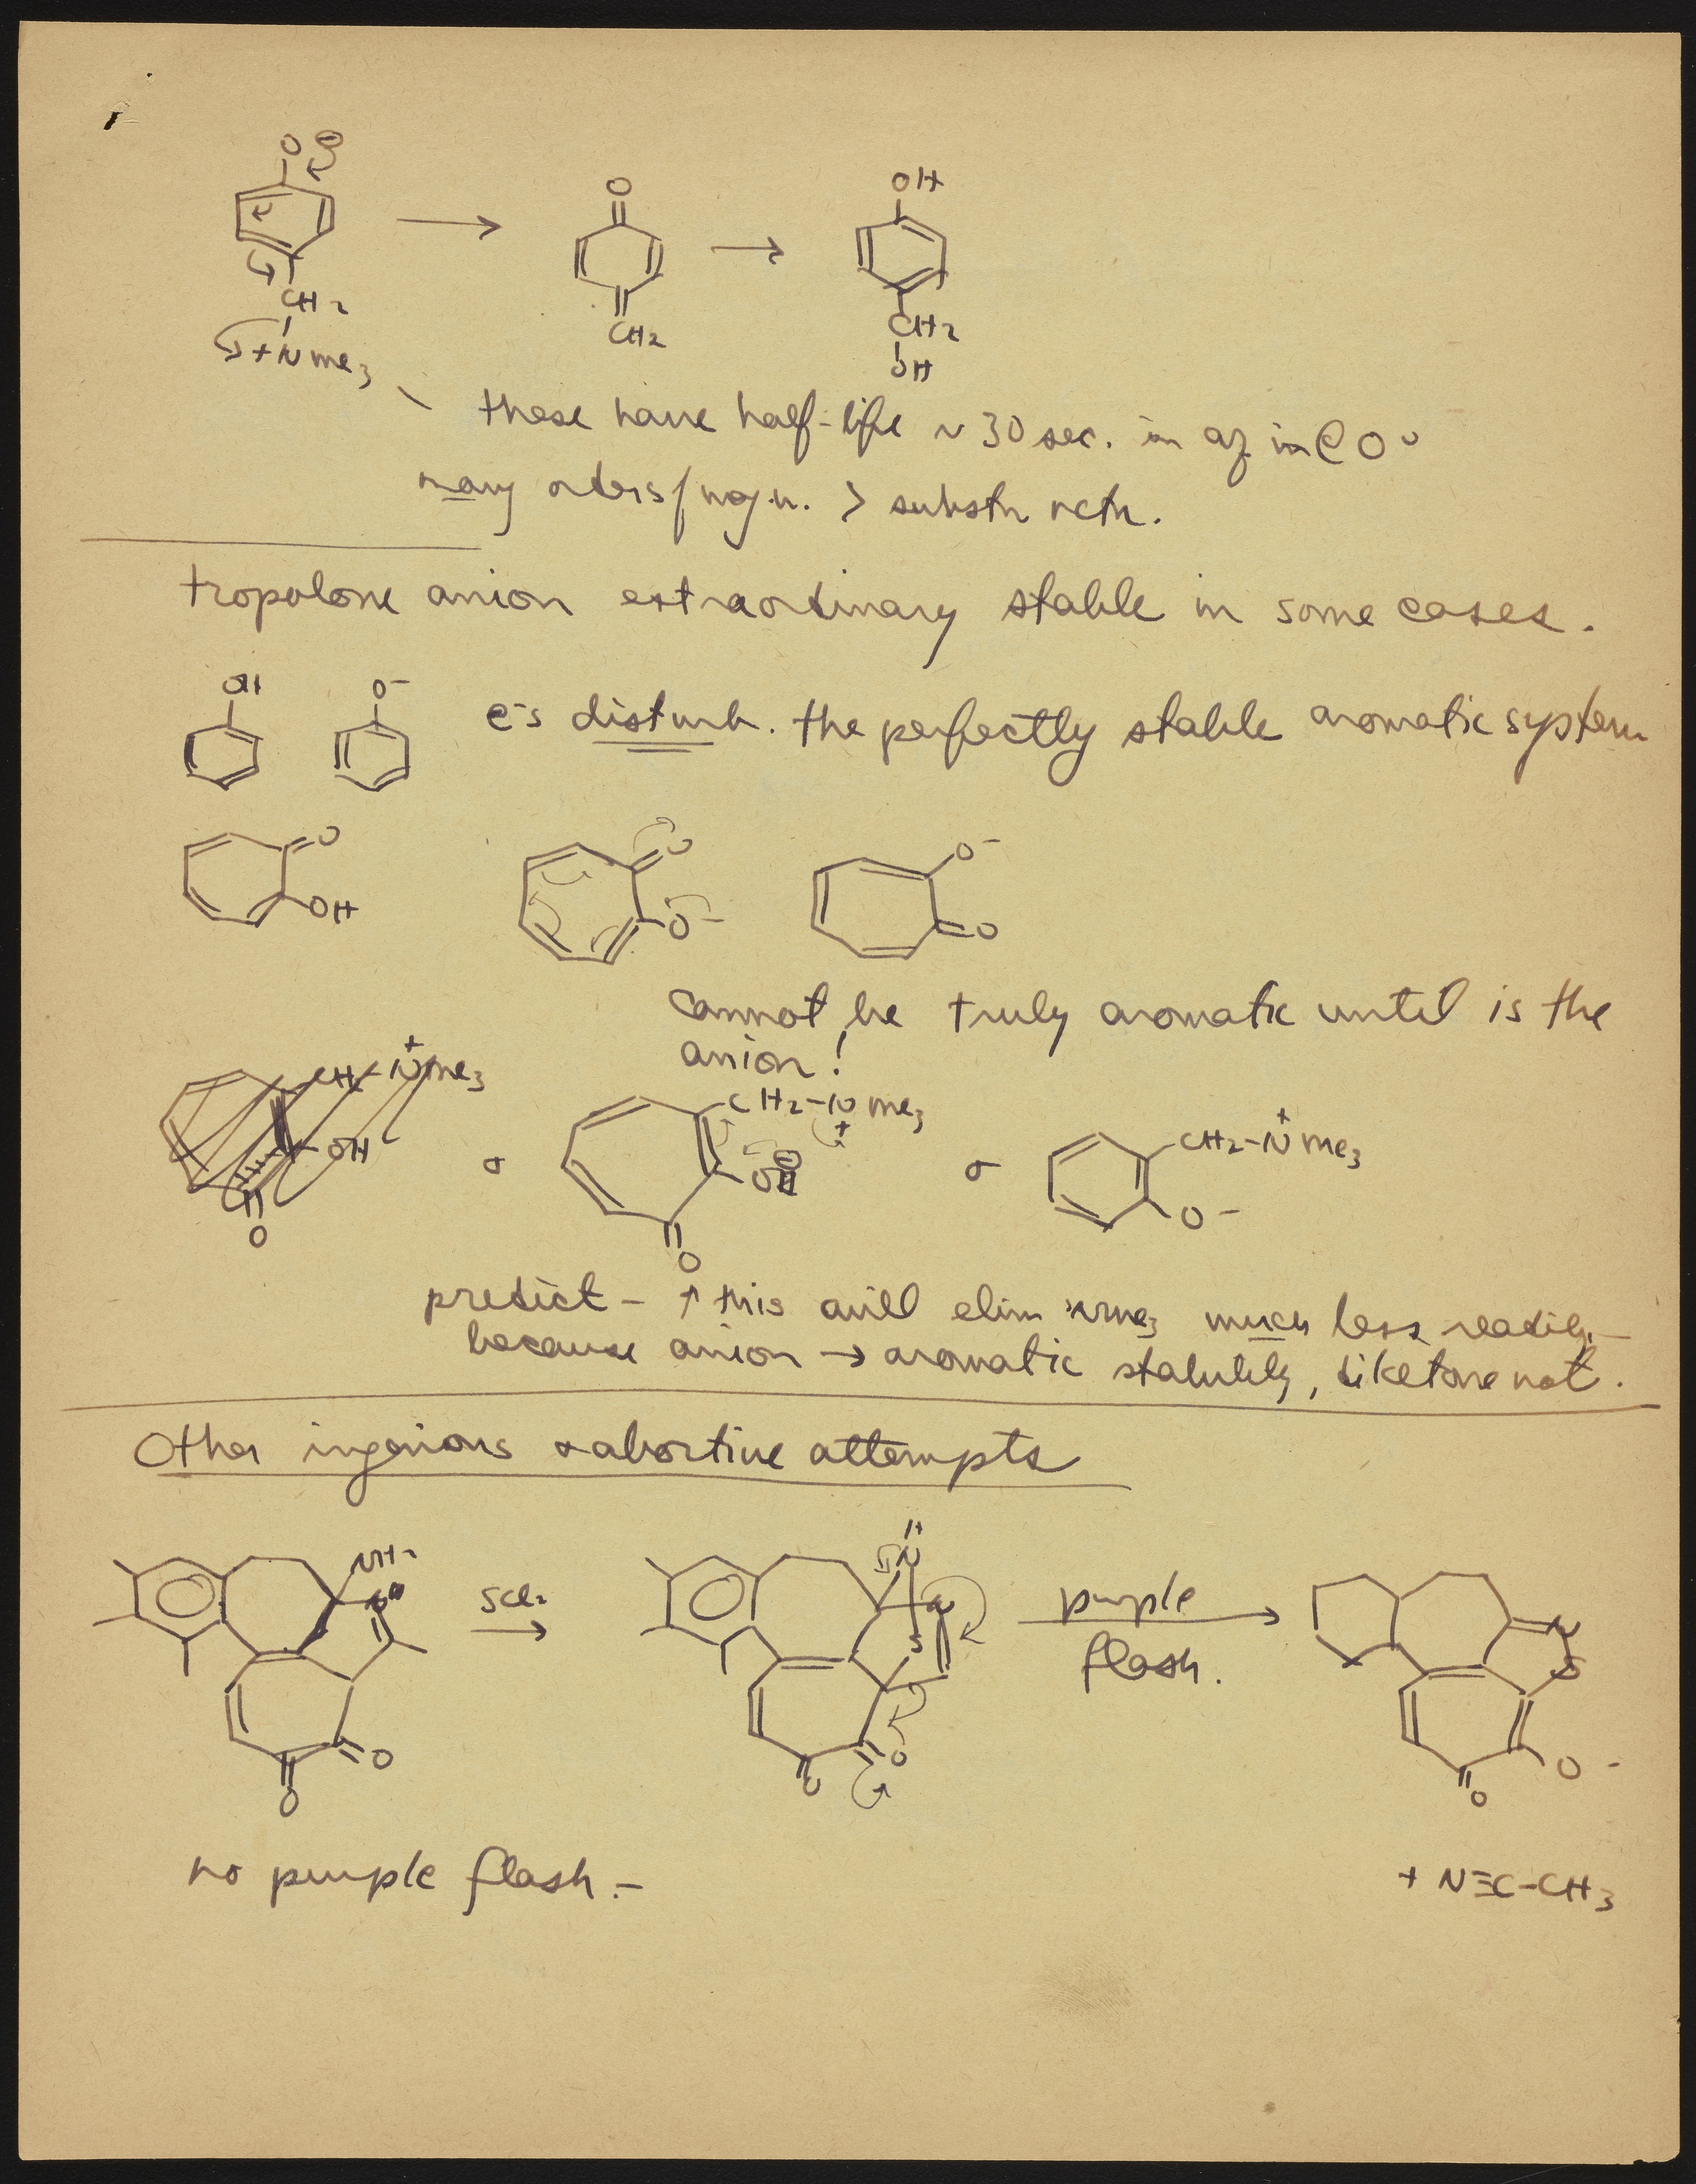 O ⊖
O
OH
CH2
+Nme3
CH2
CH2
OH
these have half-life ~ 30 sec. in aq in @ 0°
many orders/magn. > substn rctn.
tropolone anion extraordinary stable in some cases.
OH
O-
e-s disturb. the perfectly stable aromatic system
O
OH
O
O-
O-
O
cannot be truly aromatic until is the
anion!
CH-N+me3
OH
O
or
CH2-Nme3
+
⊖
O
O
or
CH2-N+me3
O-
predict - ↑ this will elim NMe3 much less readily -
because anion → aromatic stability, diketone not.
Other ingenious & abortive attempts
NH2
O
O
SCl2
→
H
N
N
S
O
O
purple
flash.
N
S
O-
O
no purple flash. -
+ N≡C-CH3